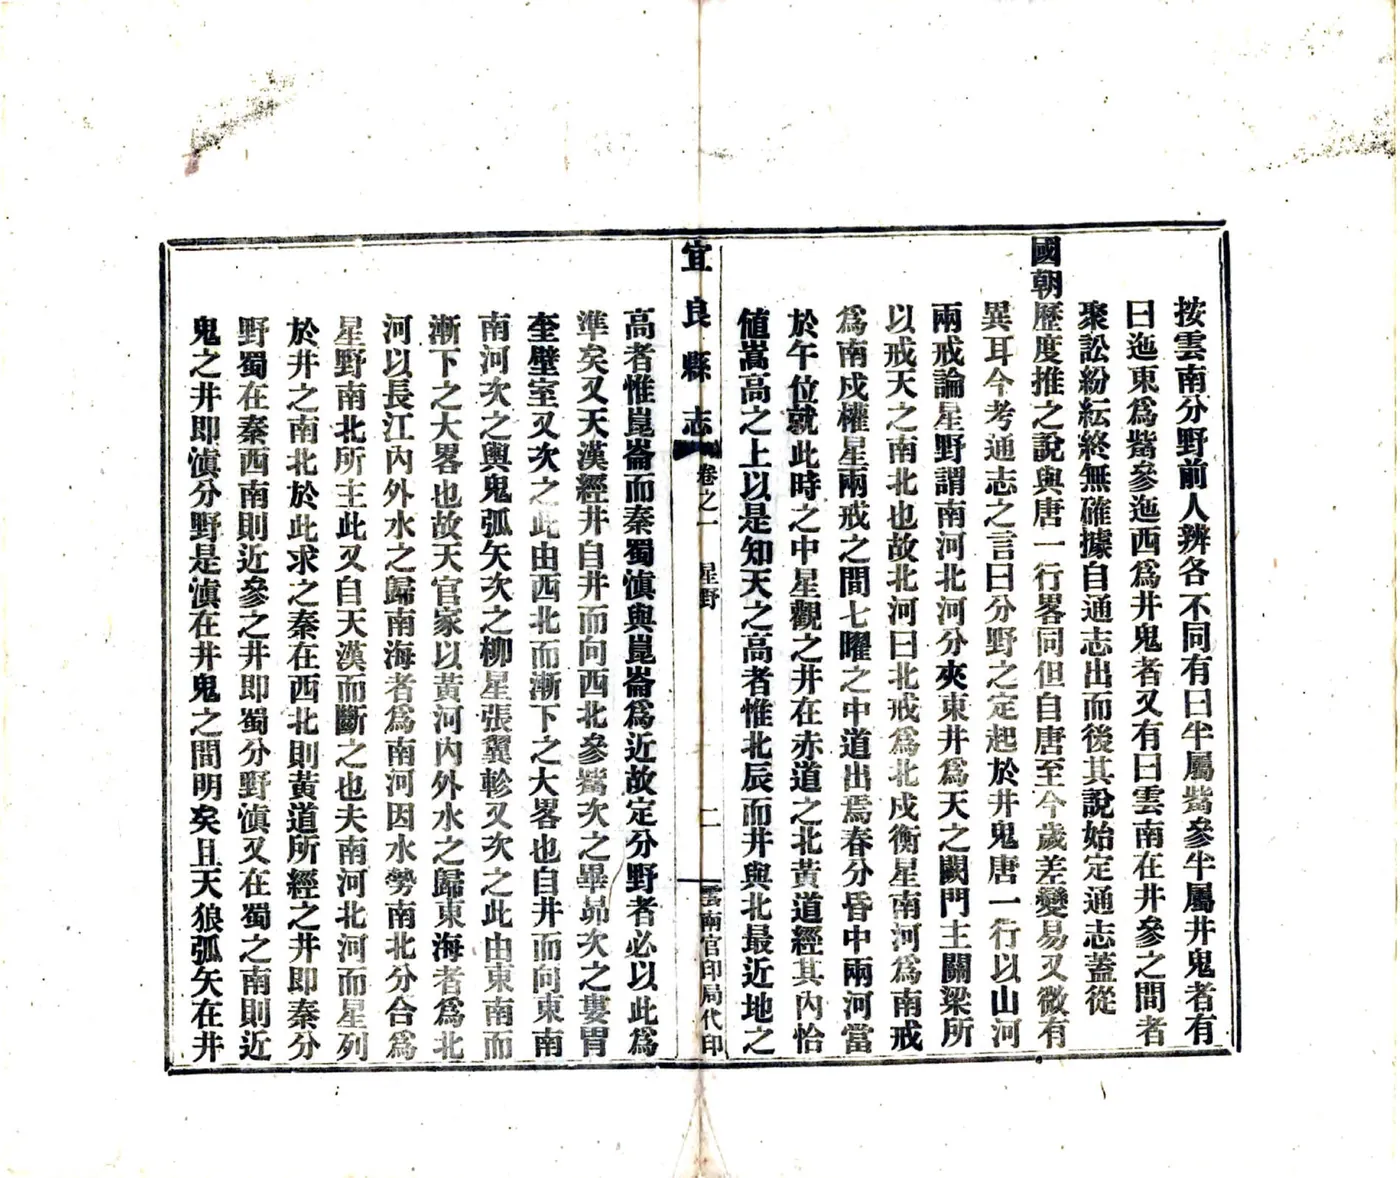 按雲南分野前人辨各不同有曰半屬觜參半屬井鬼者有
曰迤東爲觜參迤西爲井鬼者又有曰雲南在井參之間者
聚訟紛紜終無確據自通志出而後其說始定通志蓋從
國朝歷度推之說與唐一行畧同但自唐至今歲差變易又微有
異耳今考通志之言曰分野之定起於井鬼唐一行以山河
兩戒論星野謂南河北河分夾東井爲天之闕門主關梁所
以戒天之南北也故北河曰北戒爲北戍衡星南河爲南戒
爲南戍權星兩戒之間七曜之中道出焉春分昏中兩河當
於午位就此時之中星觀之井在赤道之北黃道經其內恰
値嵩高之上以是知天之高者惟北辰而井與北最近地之
宜良縣志 卷之一 星野 二 雲南官印局代印
高者惟崑崙而秦蜀滇與崑崙爲近故定分野者必以此爲
準矣又天漢經井自井而向西北參觜次之畢昴次之婁胃
奎壁室又次之此由西北而漸下之大畧也自井而向東南
南河次之輿鬼弧矢次之柳星張翼軫又次之此由東南而
漸下之大畧也故天官家以黃河內外水之歸東海者爲北
河以長江內外水之歸南海者爲南河因水勞南北分合爲
星野南北所主此又自天漢而斷之也夫南河北河而星列
於井之南北於此求之秦在西北則黃道所經之井即秦分
野蜀在秦西南則近參之井即蜀分野滇又在蜀之南則近
鬼之井即滇分野是滇在井鬼之間明矣且天狼弧矢在井